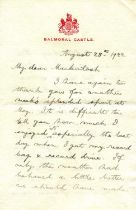 BALMORAL CASTLE.
August 28th 1922
My dear Mackintosh
I have again to
thank you for another
week's splendid sport at
It is difficult to
tell you how much I
enjoyed especially the last
day when I got my record
bag & record time. If
only the weather had
behaved a little better
we should have made